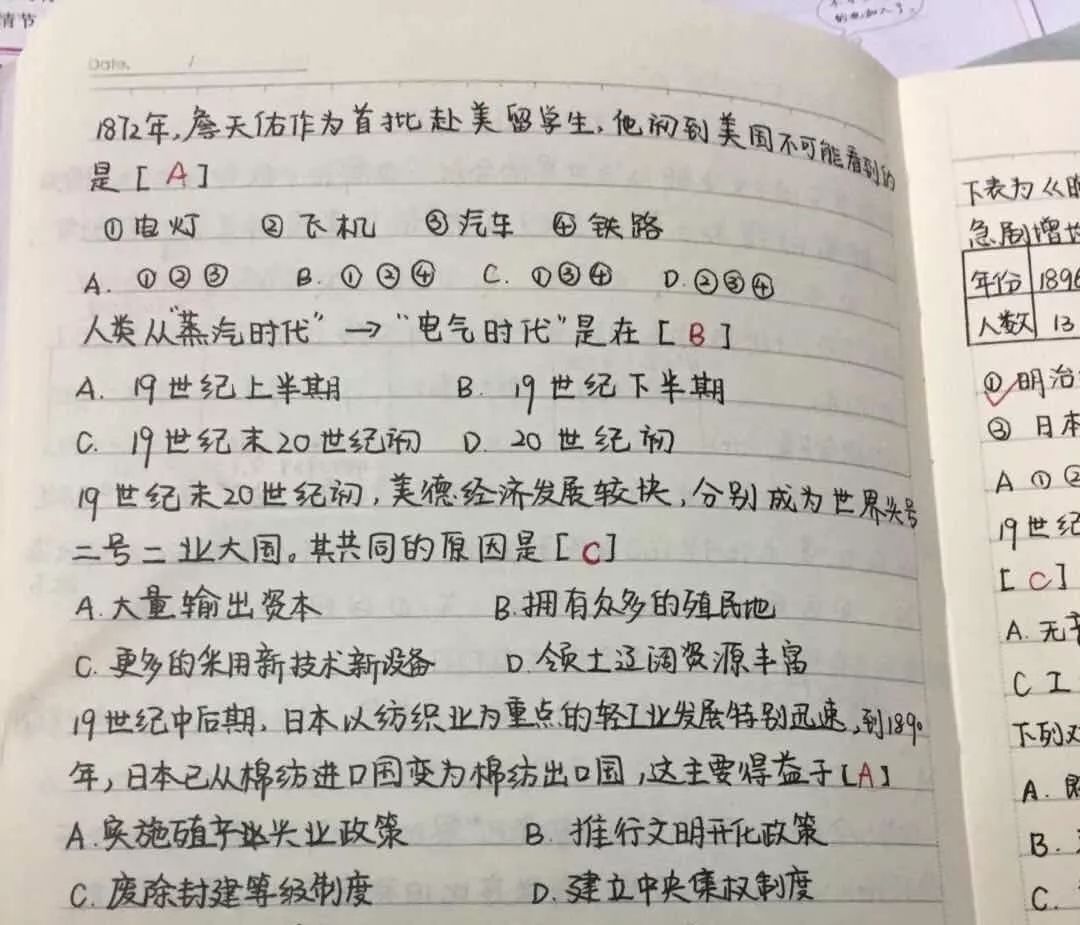 情节
的也加入了。
Date. /
1872年,詹天佑作为首批赴美留学生,他初到美国不可能看到的
是[A]
①电灯 ②飞机 ③汽车 ④铁路
A. ①②③ B. ①②④ C. ①③④ D. ②③④
人类从"蒸汽时代"→"电气时代"是在[B]
A. 19世纪上半期 B. 19世纪下半期
C. 19世纪末20世纪初 D. 20世纪初
19世纪末20世纪初,美德经济发展较快,分别成为世界头号
二号工业大国。其共同的原因是[C]
A.大量输出资本 B.拥有众多的殖民地
C. 更多的采用新技术新设备 D.领土辽阔资源丰富
19世纪中后期,日本以纺织业为重点的轻工业发展特别迅速,到1890
年,日本已从棉纺进口国变为棉纺出口国,这主要得益于[A]
A.实施殖产兴业政策 B. 推行文明开化政策
C.废除封建等级制度 D.建立中央集权制度
下表为《明
急剧增
年份 1896
人数 13
①明治
③ 日本
A ①②
19世纪
[C]
A. 无
C 工
下列
A.
B.
C.